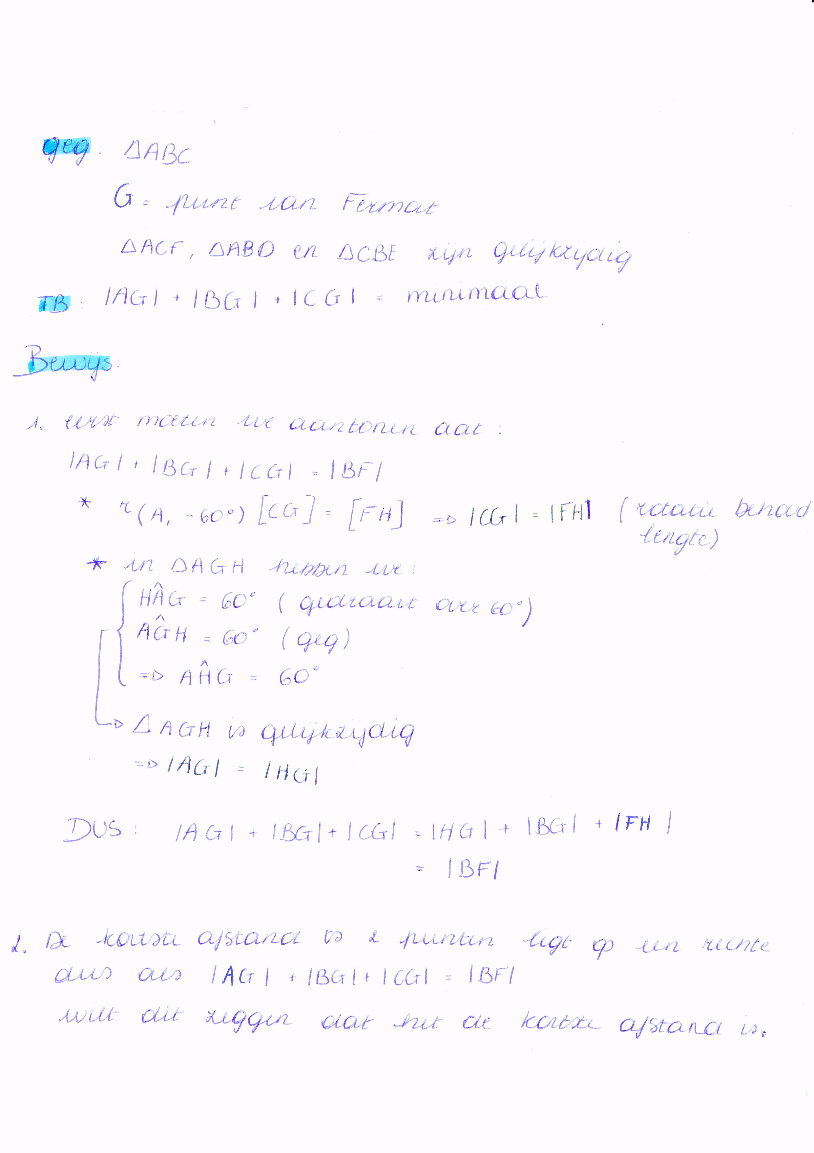 geg: ΔABC
G = punt van Fermat
ΔACF, ΔABD en ΔCBE zijn gelijkzijdig
TB: |AG| + |BG| + |CG| = minimaal
Bewijs:
1. eerst moeten we aantonen dat:
|AG| + |BG| + |CG| = |BF|
* r(A, -60°) [CG] = [FH] => |CG| = |FH| (rotatie behoud
lengte)
* in ΔAGH hebben we:
HÂG = 60° (gedraait over 60°)
AĜH = 60° (geg)
=> AĤG = 60°
-> ΔAGH is gelijkzijdig
=> |AG| = |HG|
DUS: |AG| + |BG| + |CG| = |HG| + |BG| + |FH|
= |BF|
2. De kortste afstand is 2 punten ligt op een rechte
dus als |AG| + |BG| + |CG| = |BF|
wilt dit zeggen dat het de kortste afstand is.